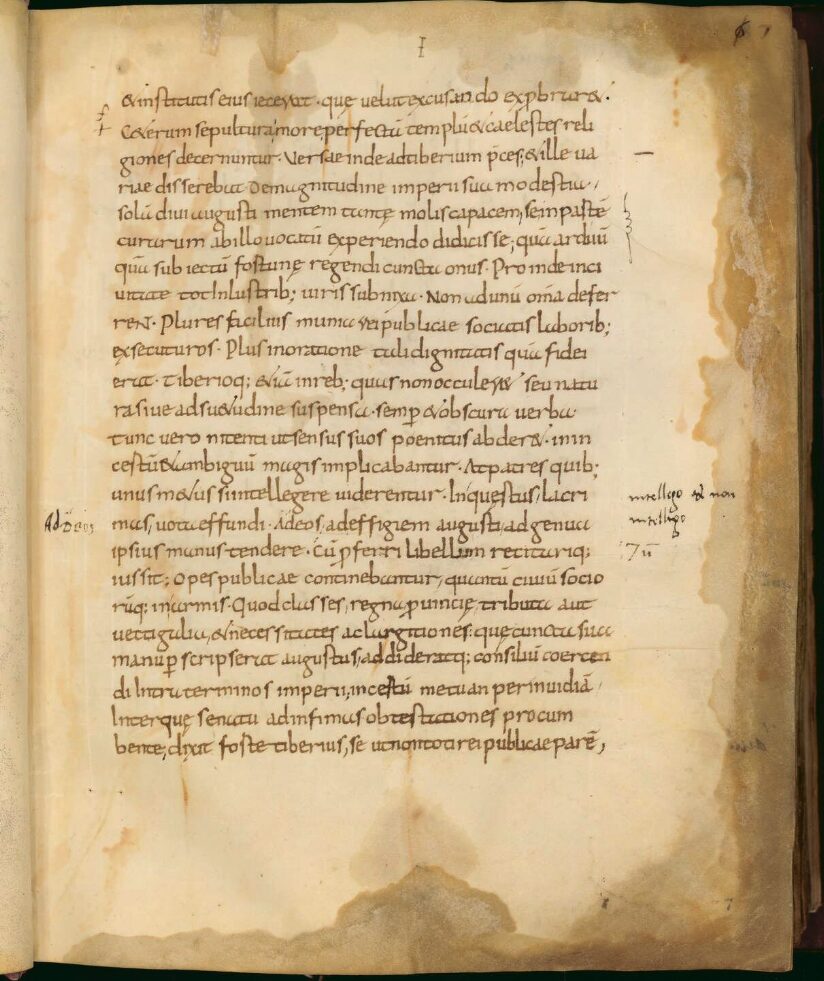 I
6 1
& institutis eius iecerat · quę velut excusando exprobraret ·
Ceterum sepultura more perfectū templū & caelestes reli
giones decernuntur · Versae inde ad tiberium p̄ces, & ille va
riae disserebat · De magnitudine imperii sua modestia ·
solā divi augusti mentem tantę molis capacem, se in partē
curarum ab illo vocatū experiendo didicisse, quā arduū
quā subiectū fortunę regendi cuncta onus · Proinde in ci
vitate tot inlustrib; viris subnixa · Non ad unū om̄ia defer
reN · Plures facilius munia rei publicae sociatis laborib;
exsecuturos · Plus in oratione tali dignitatis quā fidei
erat · Tiberioq; &iā in reb; quas non occuleret seu natu
ra sive adsu&udine suspensa semꝑ & obscura verba ·
tunc vero nitenti ut sensus suos poenitus abder& · in in
certū & ambiguū magis implicabantur · At patres quib;
unus m&us si intellegere viderentur · In questus, lacri
intellego & non
intellego
mas, vota effundi · Ad eos, ad effigiem augusti, ad genua
Ad Deos
ipsius manus tendere · Cū ꝓferri libellum recitariq;
7 ū
iussit; Opes publicae continebantur, quantū civiū socio
rūq; in armis · Quod classes, regna ꝓvincię, tributa aut
vectigalia, & necessitates ac largitiones · quę cuncta sua
manu ꝑscripserat augustus, addideratq; consiliū coercen
di Intra terminos imperii, incertū metu an per invidiā ·
Interquę senatu ad infimas obtestationes procum
bente, dixit forte tiberius, se ut non toti rei publicae parē,